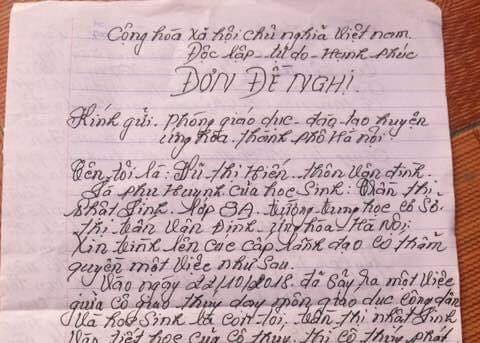 Cộng hòa xã hội chủ nghĩa Việt nam
Độc lập - tự do - Hạnh phúc
ĐƠN ĐỀ NGHỊ.
Kính gửi. phòng giáo dục - đào tạo huyện
Ứng hòa. thành phố Hà nội.
Tên tôi là: Vũ thị Hiền - thôn Vân đình.
Là phụ Huynh của học Sinh. Trần thị
nhất Linh. lớp 8A. trường trung học cơ Sở
thị trấn Vân Đình. ứng hòa Hà Nội.
Xin trình lên các cấp lãnh đạo có thẩm
quyền một việc như Sau.
Vào ngày 22/10/2018. đã Sảy ra một việc
giữa cô giáo thúy dạy môn giáo dục công dân
Và học Sinh là con tôi. trần thị nhất Linh
Vào tiết học của cô thúy. thì cô thúy phát